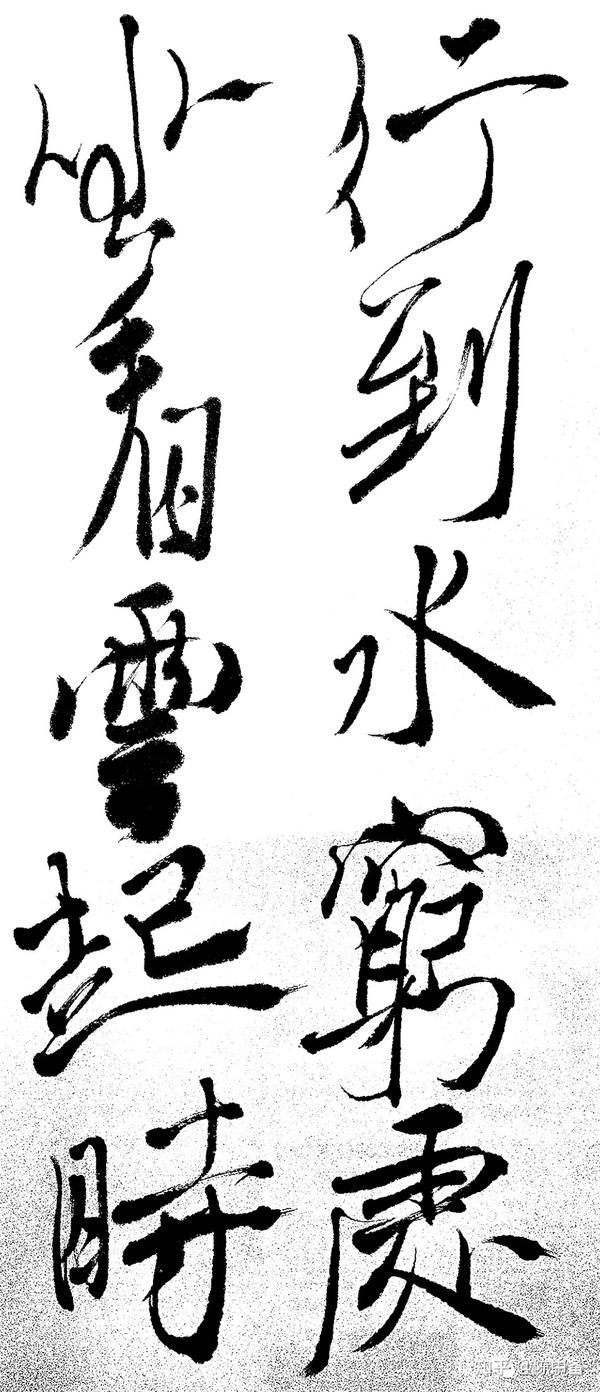 行到水窮處
坐看雲起時